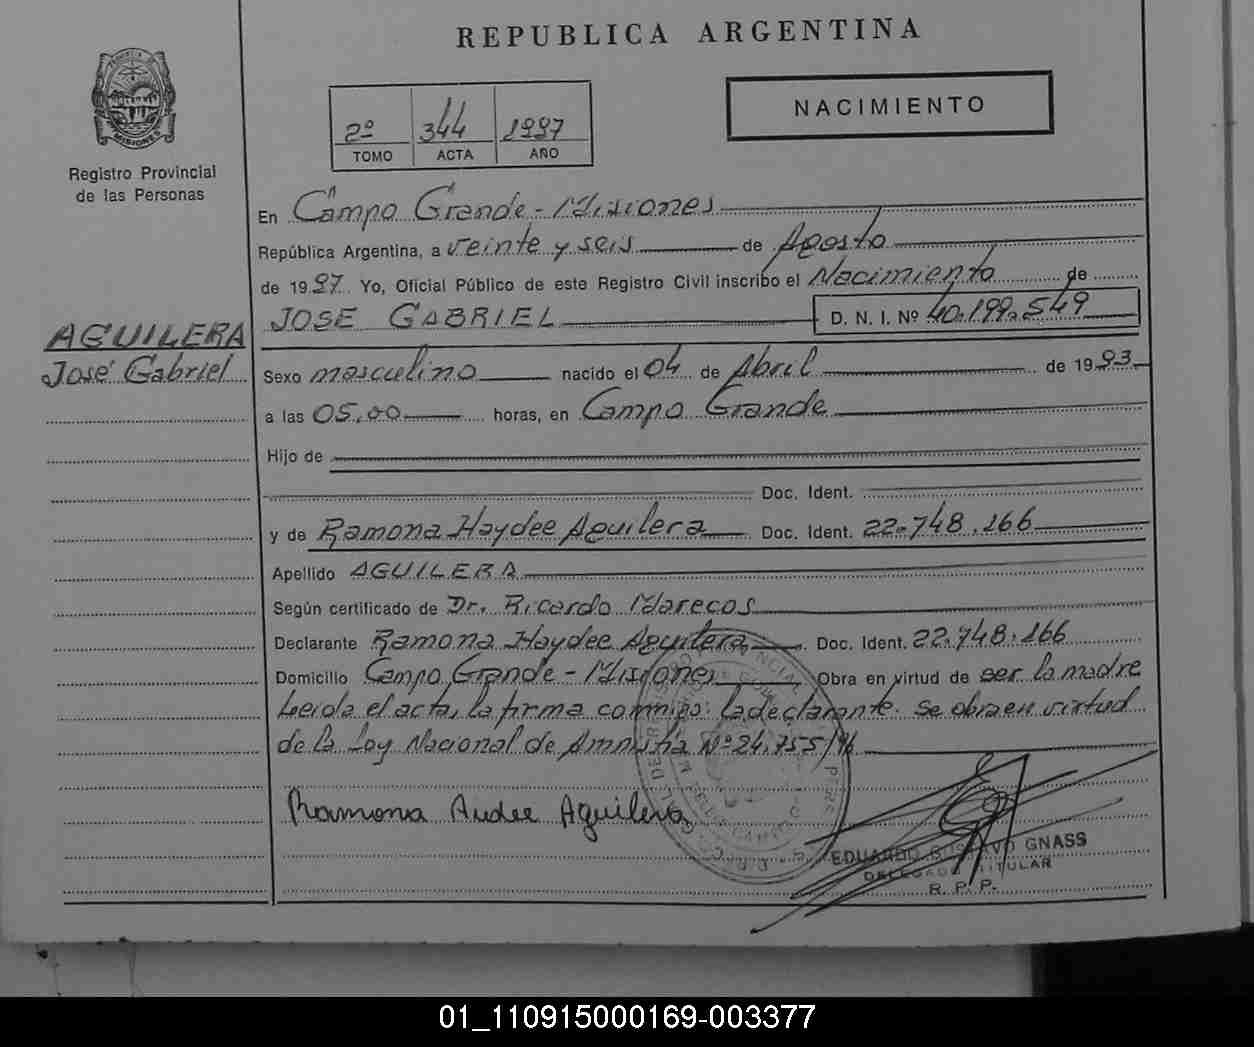 REPUBLICA ARGENTINA
NACIMIENTO
2º 344 1997
TOMO ACTA AÑO
PROVINCIA DE MISIONES
Registro Provincial
de las Personas
En Campo Grande - Misiones
República Argentina, a veinte y seis de Agosto
de 1997 Yo, Oficial Público de este Registro Civil inscribo el Nacimiento de
JOSE GABRIEL D. N. I. Nº 40.199.549
AGUILERA
José Gabriel
Sexo masculino nacido el 04 de Abril de 1993
a las 05,00 horas, en Campo Grande
Hijo de
Doc. Ident.
y de Ramona Haydee Aguilera Doc. Ident. 22.748.166
Apellido AGUILERA
Según certificado de Dr. Ricardo Marecos
Declarante Ramona Haydee Aguilera Doc. Ident. 22.748.166
Domicilio Campo Grande - Misiones Obra en virtud de ser la madre
Leida el acta, la firma conmigo la declarante. Se obra en virtud
de la Ley Nacional de Amnistia Nº 24.755/96
Ramona Audee Aguilera
EDUARDO GUSTAVO GNASS
DELEGADO TITULAR
R. P. P.
01_110915000169-003377